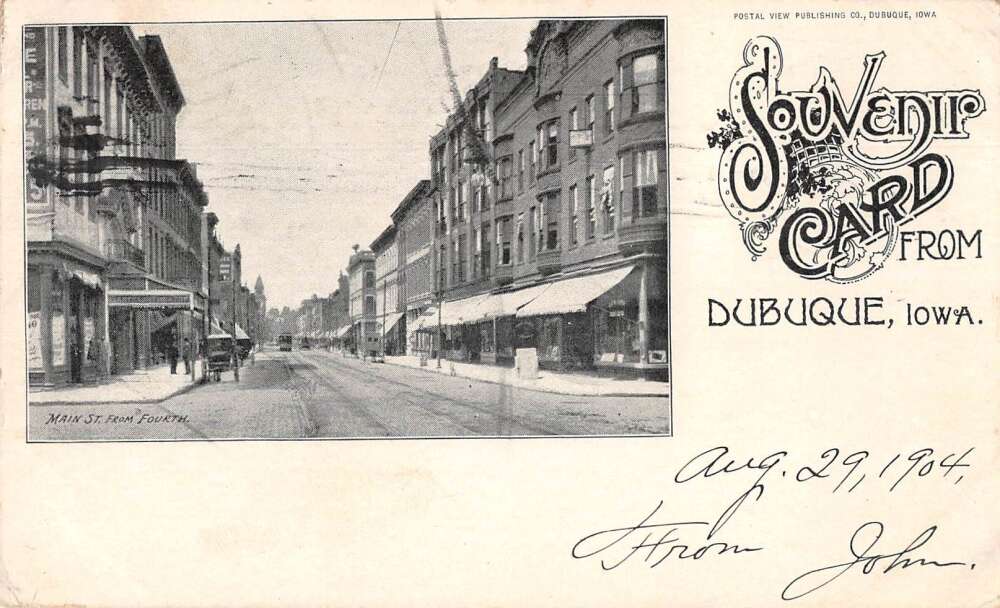 POSTAL VIEW PUBLISHING CO., DUBUQUE, IOWA
SOUVENIR
CARD
FROM
DUBUQUE, IOWA.
MAIN ST. FROM FOURTH.
Aug. 29, 1904,
From John.